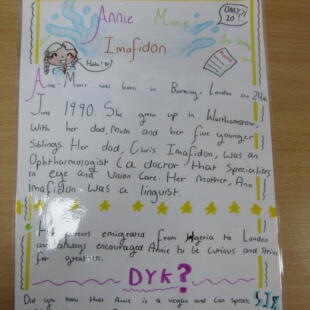 ONLY 20!
Annie Marie
Imafidon
Hola!
Anne-Marie was born in Barking, London on 24th
June 1990. She grew up in Walthamstow,
with her dad, Mum and her five younger
Siblings. Her dad, Chris Imafidon, was an
Ophthalmologist (a doctor that Specialises
in eye and Vision Care. Her Mother, Ann
Imafidon was a linguist.
Her parents emigrated from Nigeria to London
and always encouraged Annie to be curious and strive
for greatness.
DYK?
Did you know that Annie is a vegan and can speak